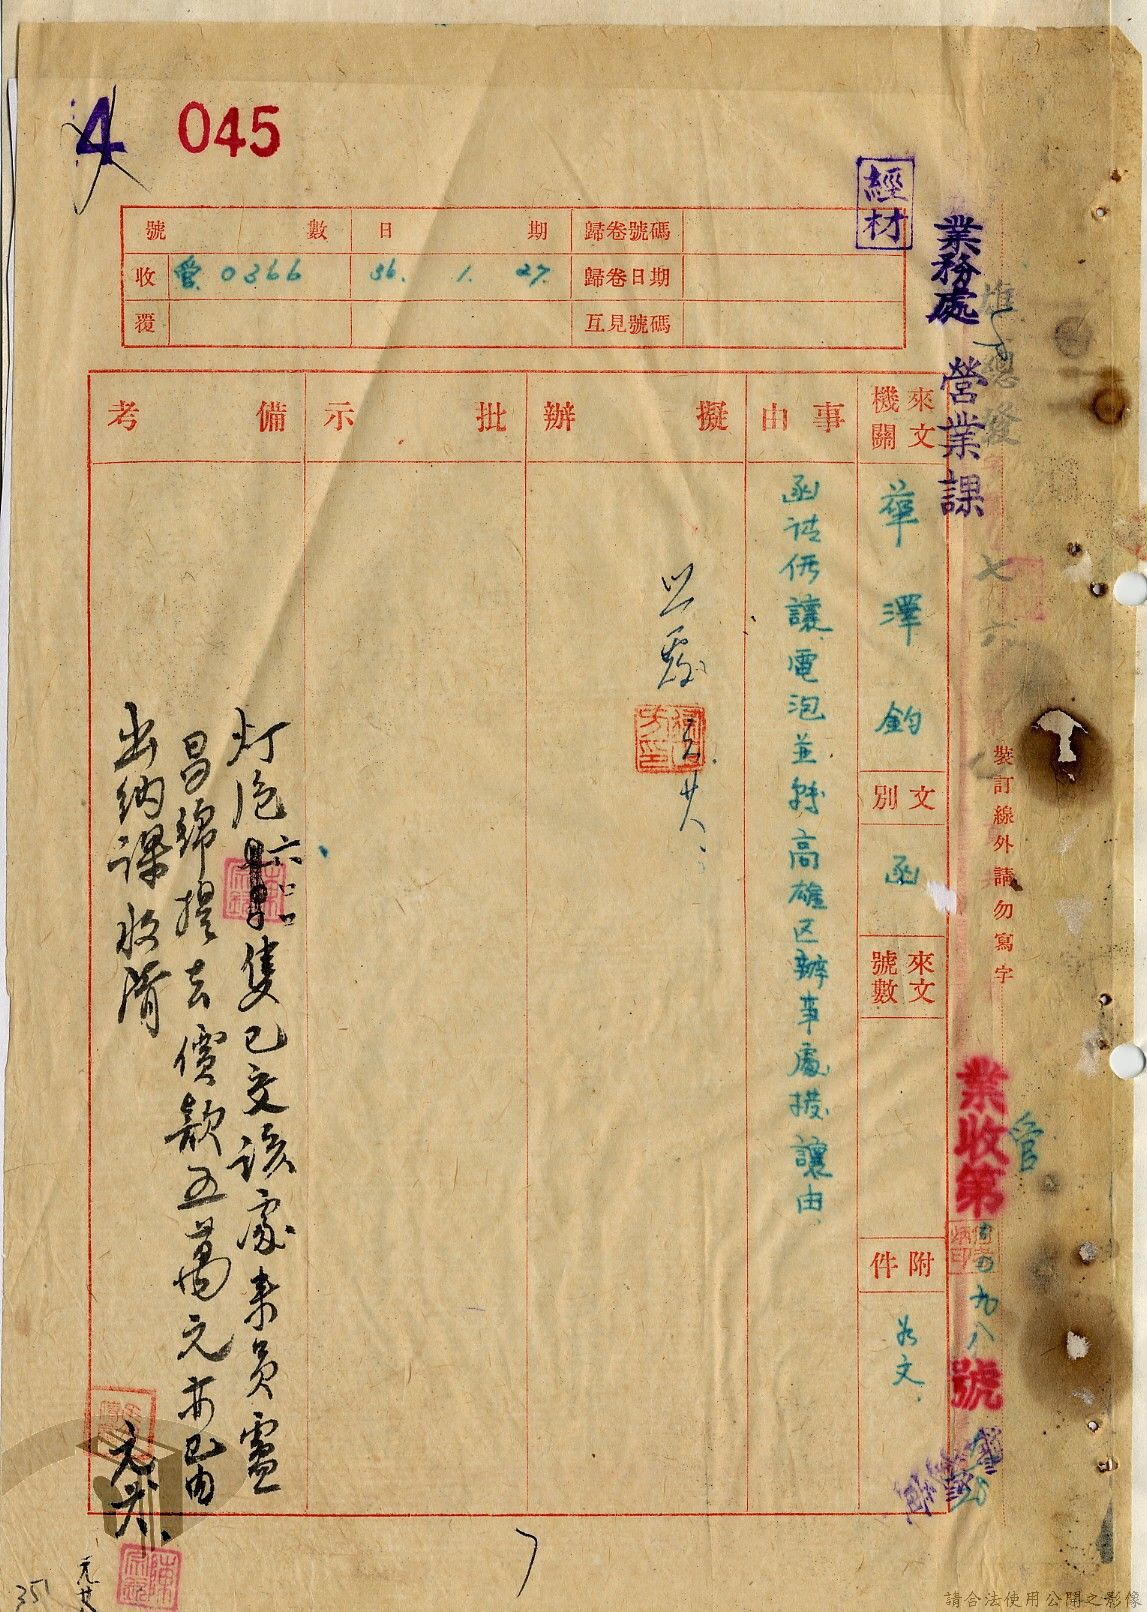 4 045
經材
業務處 營業課
號數 日期 歸卷號碼
收 管 0366 36. 1. 27. 歸卷日期
覆 互見號碼
來文機關
華澤鈞
文別
函
來文號數
附件
如文
事由
函請伍讓電泡並轉高雄区辦事處撥讓由
擬辦
批示
備考
灯泡六
隻已交該處來員盧
昌錦提去價款五萬元亦已由
出納課收清
裝訂線外請勿寫字
業收第
九八
號
管
七六
351
請合法使用公開之影像